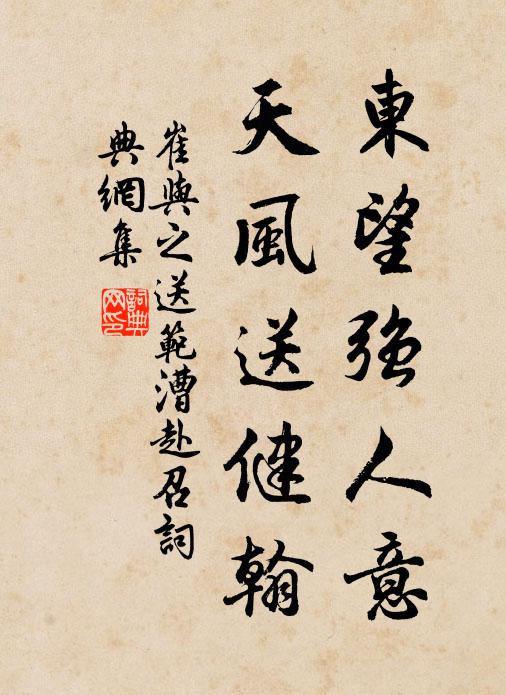 東望強人意
天風送健翰
崔與之送範漕赴召詞
典網集
詞典網印